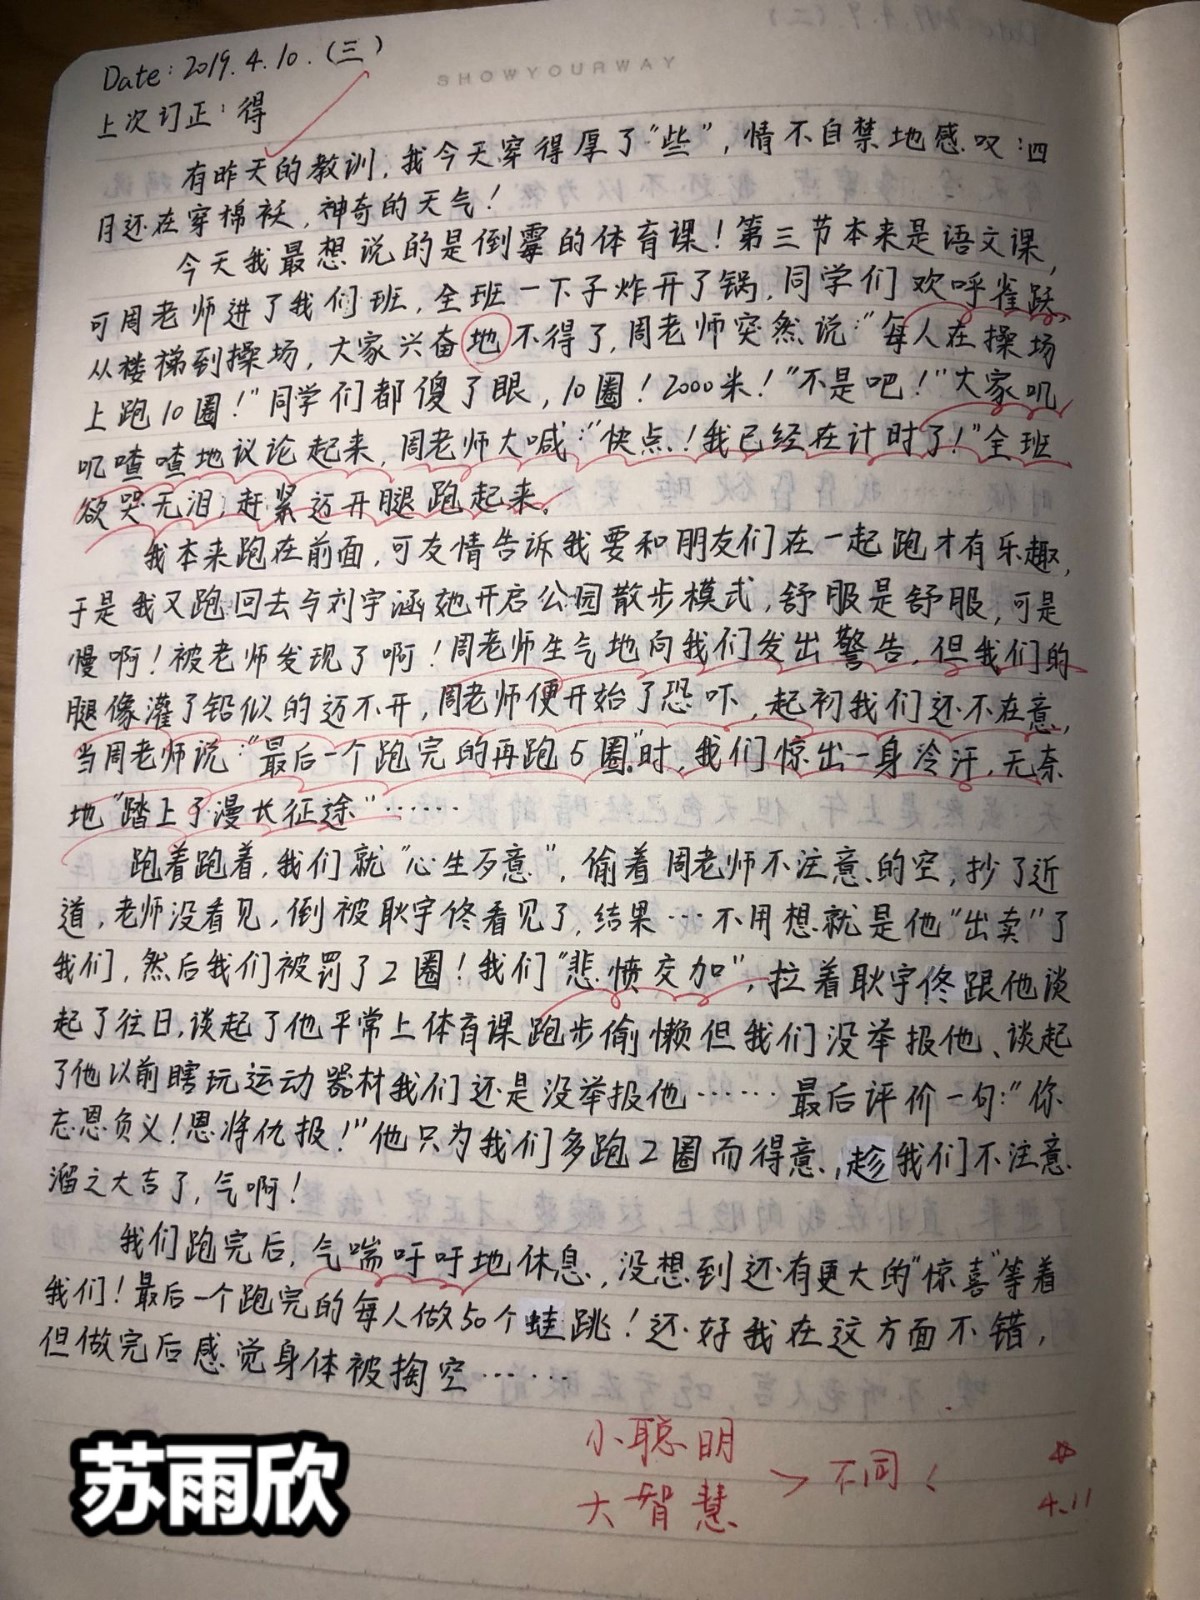 Date: 2019.4.10.(三)
SHOWYOURWAY
上次订正:得
有昨天的教训,我今天穿得厚了"些",情不自禁地感叹:四
月还在穿棉袄,神奇的天气!
今天我最想说的是倒霉的体育课!第三节本来是语文课,
可周老师进了我们班,全班一下子炸开了锅,同学们欢呼雀跃
从楼梯到操场,大家兴奋地不得了,周老师突然说:"每人在操场
上跑10圈!"同学们都傻了眼,10圈!2000米!"不是吧!"大家叽
叽喳喳地议论起来,周老师大喊:"快点!我已经在计时了!"全班
欲哭无泪,赶紧迈开腿跑起来。
我本来跑在前面,可友情告诉我要和朋友们在一起跑才有乐趣,
于是我又跑回去与刘宇涵她开启公园散步模式,舒服是舒服,可是
慢啊!被老师发现了啊!周老师生气地向我们发出警告,但我们的
腿像灌了铅似的迈不开,周老师便开始了恐吓,起初我们还不在意,
当周老师说:"最后一个跑完的再跑5圈"时,我们惊出一身冷汗,无奈
地"踏上了漫长征途"……
跑着跑着,我们就"心生歹意",偷着周老师不注意的空,抄了近
道,老师没看见,倒被耿宇佟看见了,结果…不用想就是他"出卖"了
我们,然后我们被罚了2圈!我们"悲愤交加",拉着耿宇佟跟他谈
起了往日,谈起了他平常上体育课跑步偷懒但我们没举报他、谈起
了他以前瞎玩运动器材我们还是没举报他……最后评价一句:"你
忘恩负义!恩将仇报!"他只为我们多跑2圈而得意,趁我们不注意
溜之大吉了,气啊!
我们跑完后,气喘吁吁地休息,没想到还有更大的"惊喜"等着
我们!最后一个跑完的每人做50个蛙跳!还好我在这方面不错,
但做完后感觉身体被掏空……
小聪明
大智慧
> 不同!
4.11
苏雨欣